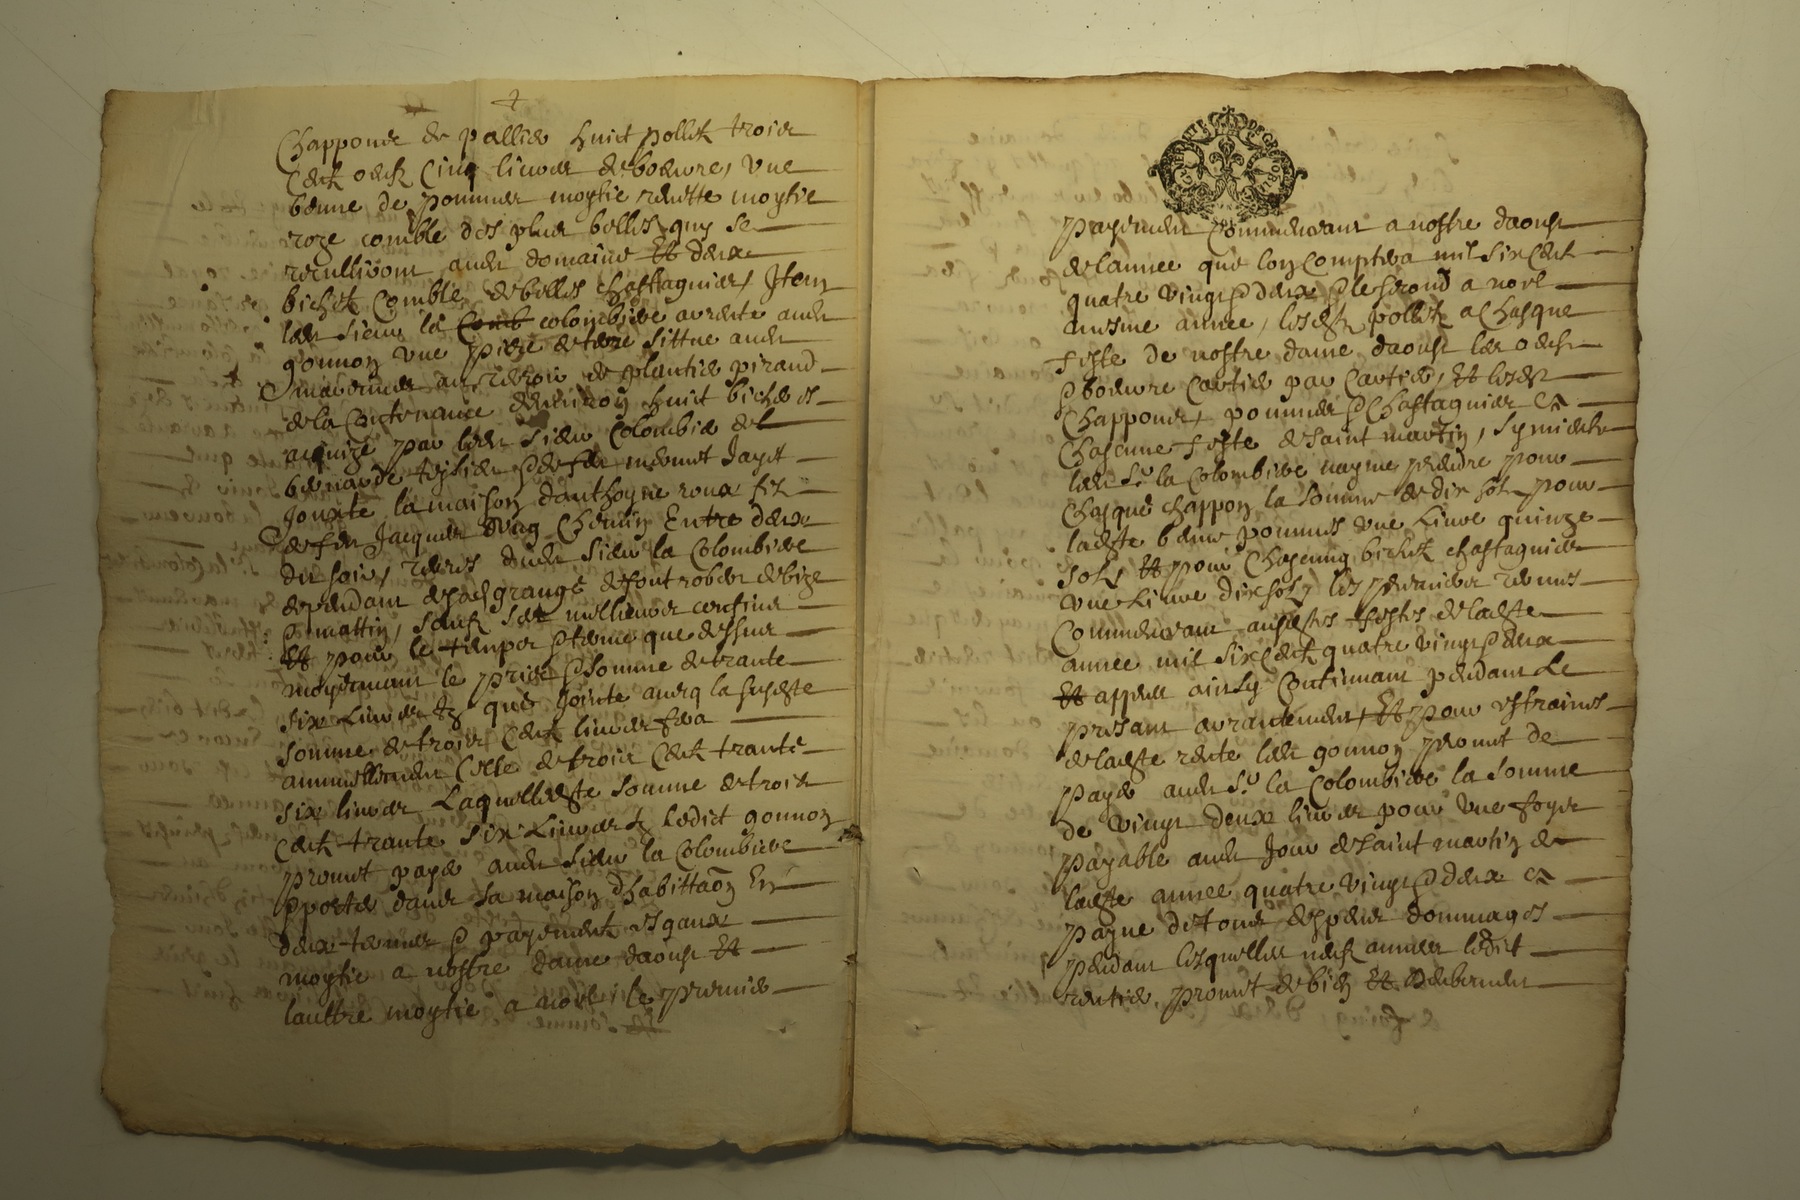 4
Chappons de pallier huict pollets trois
cent oeufs cinq livres de beurre, une
benne de pommes moytie renette moytie
roze comble des plus belles quy se
recullisont audt domaine Et deux
bichets comble de belles chastagnies, Item
ledt sieur la Comb colombiere arente audt
gonnon une piece de terre sittue audt
de la Contenance denviron huict bicherees
acquize par ledt sieur Colombier de
Jouxte la maison danthoyne roux filz
de feu Jacques ung Chemin Entre deux
du soir, terres dudt sieur la Colombiere
Et pour le temps et terme que dessus
moyennant le prix et somme de trante
six Livres tz que Jointe aveq la susdte
somme de trois cent livres fera
annuellement Celle de trois cent trante
six livres Laquelle dte somme de trois
cent trante six Livres tz ledict gonnon
promet payer audt sieur la Colombiere
porter dans sa maison dhabittaon En
deux termes et payements esgaux
moytie a nostre dame daoust Et
lauttre moytie a noel, le premier
GNERALITE DE GRENOBLE
payement Commencant a nostre daoust
de lannee que lon Comptera mil six cent
quatre vingt et deux et le second a noel
mesme annee, lesdts pollets a Chasque
feste de nostre dame daoust les oeufs
et beurre Cartier par Cartier, Et lesdts
Chappons, pommes et Chastagnies a
Chascune feste de saint martin, sy mieux
ledt Sr la Colombiere nayme prendre pour
Chasque chappon la somme de dix sols pour
ladte benne pommes une Livre quinze
sols Et pour Chascung bichets chastagnies
une Livre dix sols, les premiers termes
Commencant ausdtes festes de ladte
annee mil six cent quatre vingt et deux
Et appres ainsy Continuant pendant Le
presant arrantement, Et pour estraines
de ladte rente ledt gonnon promet de
payer audt Sr la Colombiere la somme
de vingt deux livres pour une foys
payable audt Jour de saint martin de
ladte annee quatre vingt et deux a
payne de tous despens dommages
pendant lesquelles neuf annees ledict
rentier promet de bien Et deubement